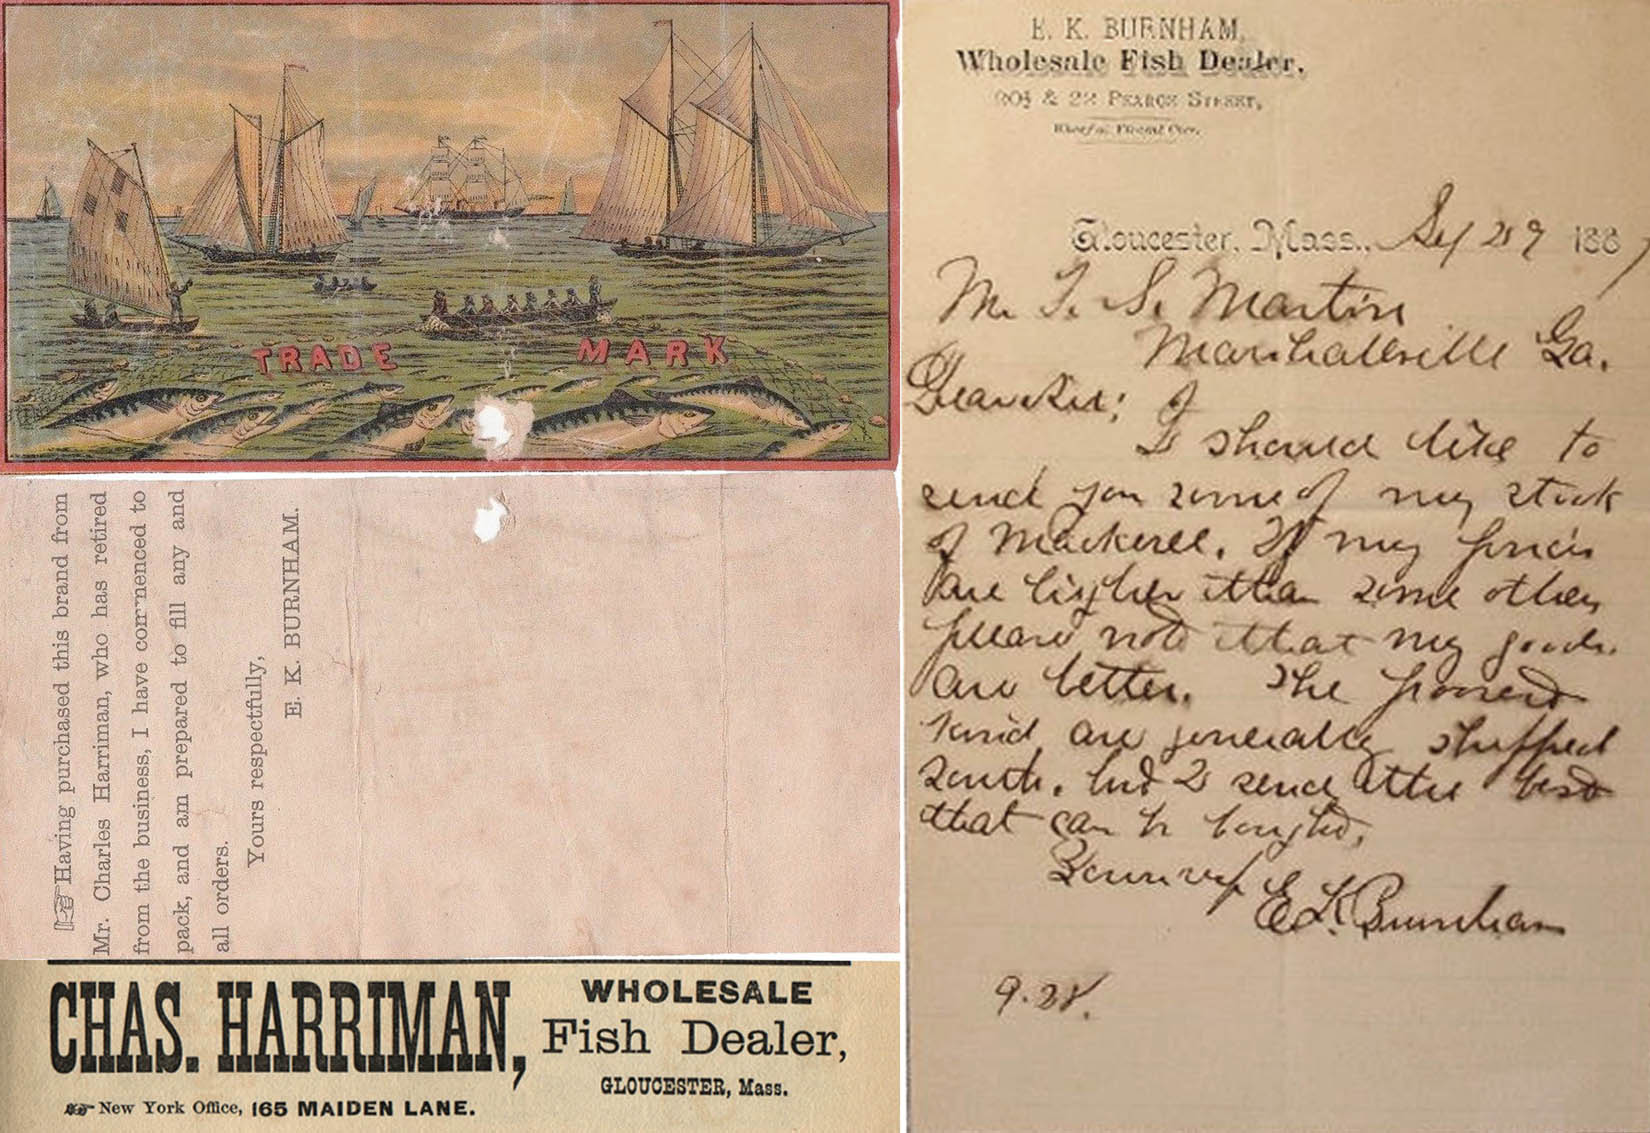 TRADE MARK
☞Having purchased this brand from
Mr. Charles Harriman, who has retired
from the business, I have commenced to
pack, and am prepared to fill any and
all orders.
Yours respectfully,
E. K. BURNHAM.
CHAS. HARRIMAN,
WHOLESALE
Fish Dealer,
GLOUCESTER, Mass.
☞ New York Office, 165 MAIDEN LANE.
E. K. BURNHAM,
Wholesale Fish Dealer,
20½ & 22 PEARCE STREET,
Gloucester, Mass., 188
Mr. S. Martin
Marshallville Ga.
Dear Sir; I
I should like to
send you some of my stock
of Mackerel. If my prices
are higher than some others
please note that my goods.
are better. The poorest
kind are generally shipped
South, but I send the best
that can be bought,
E K Burnham
9.28.